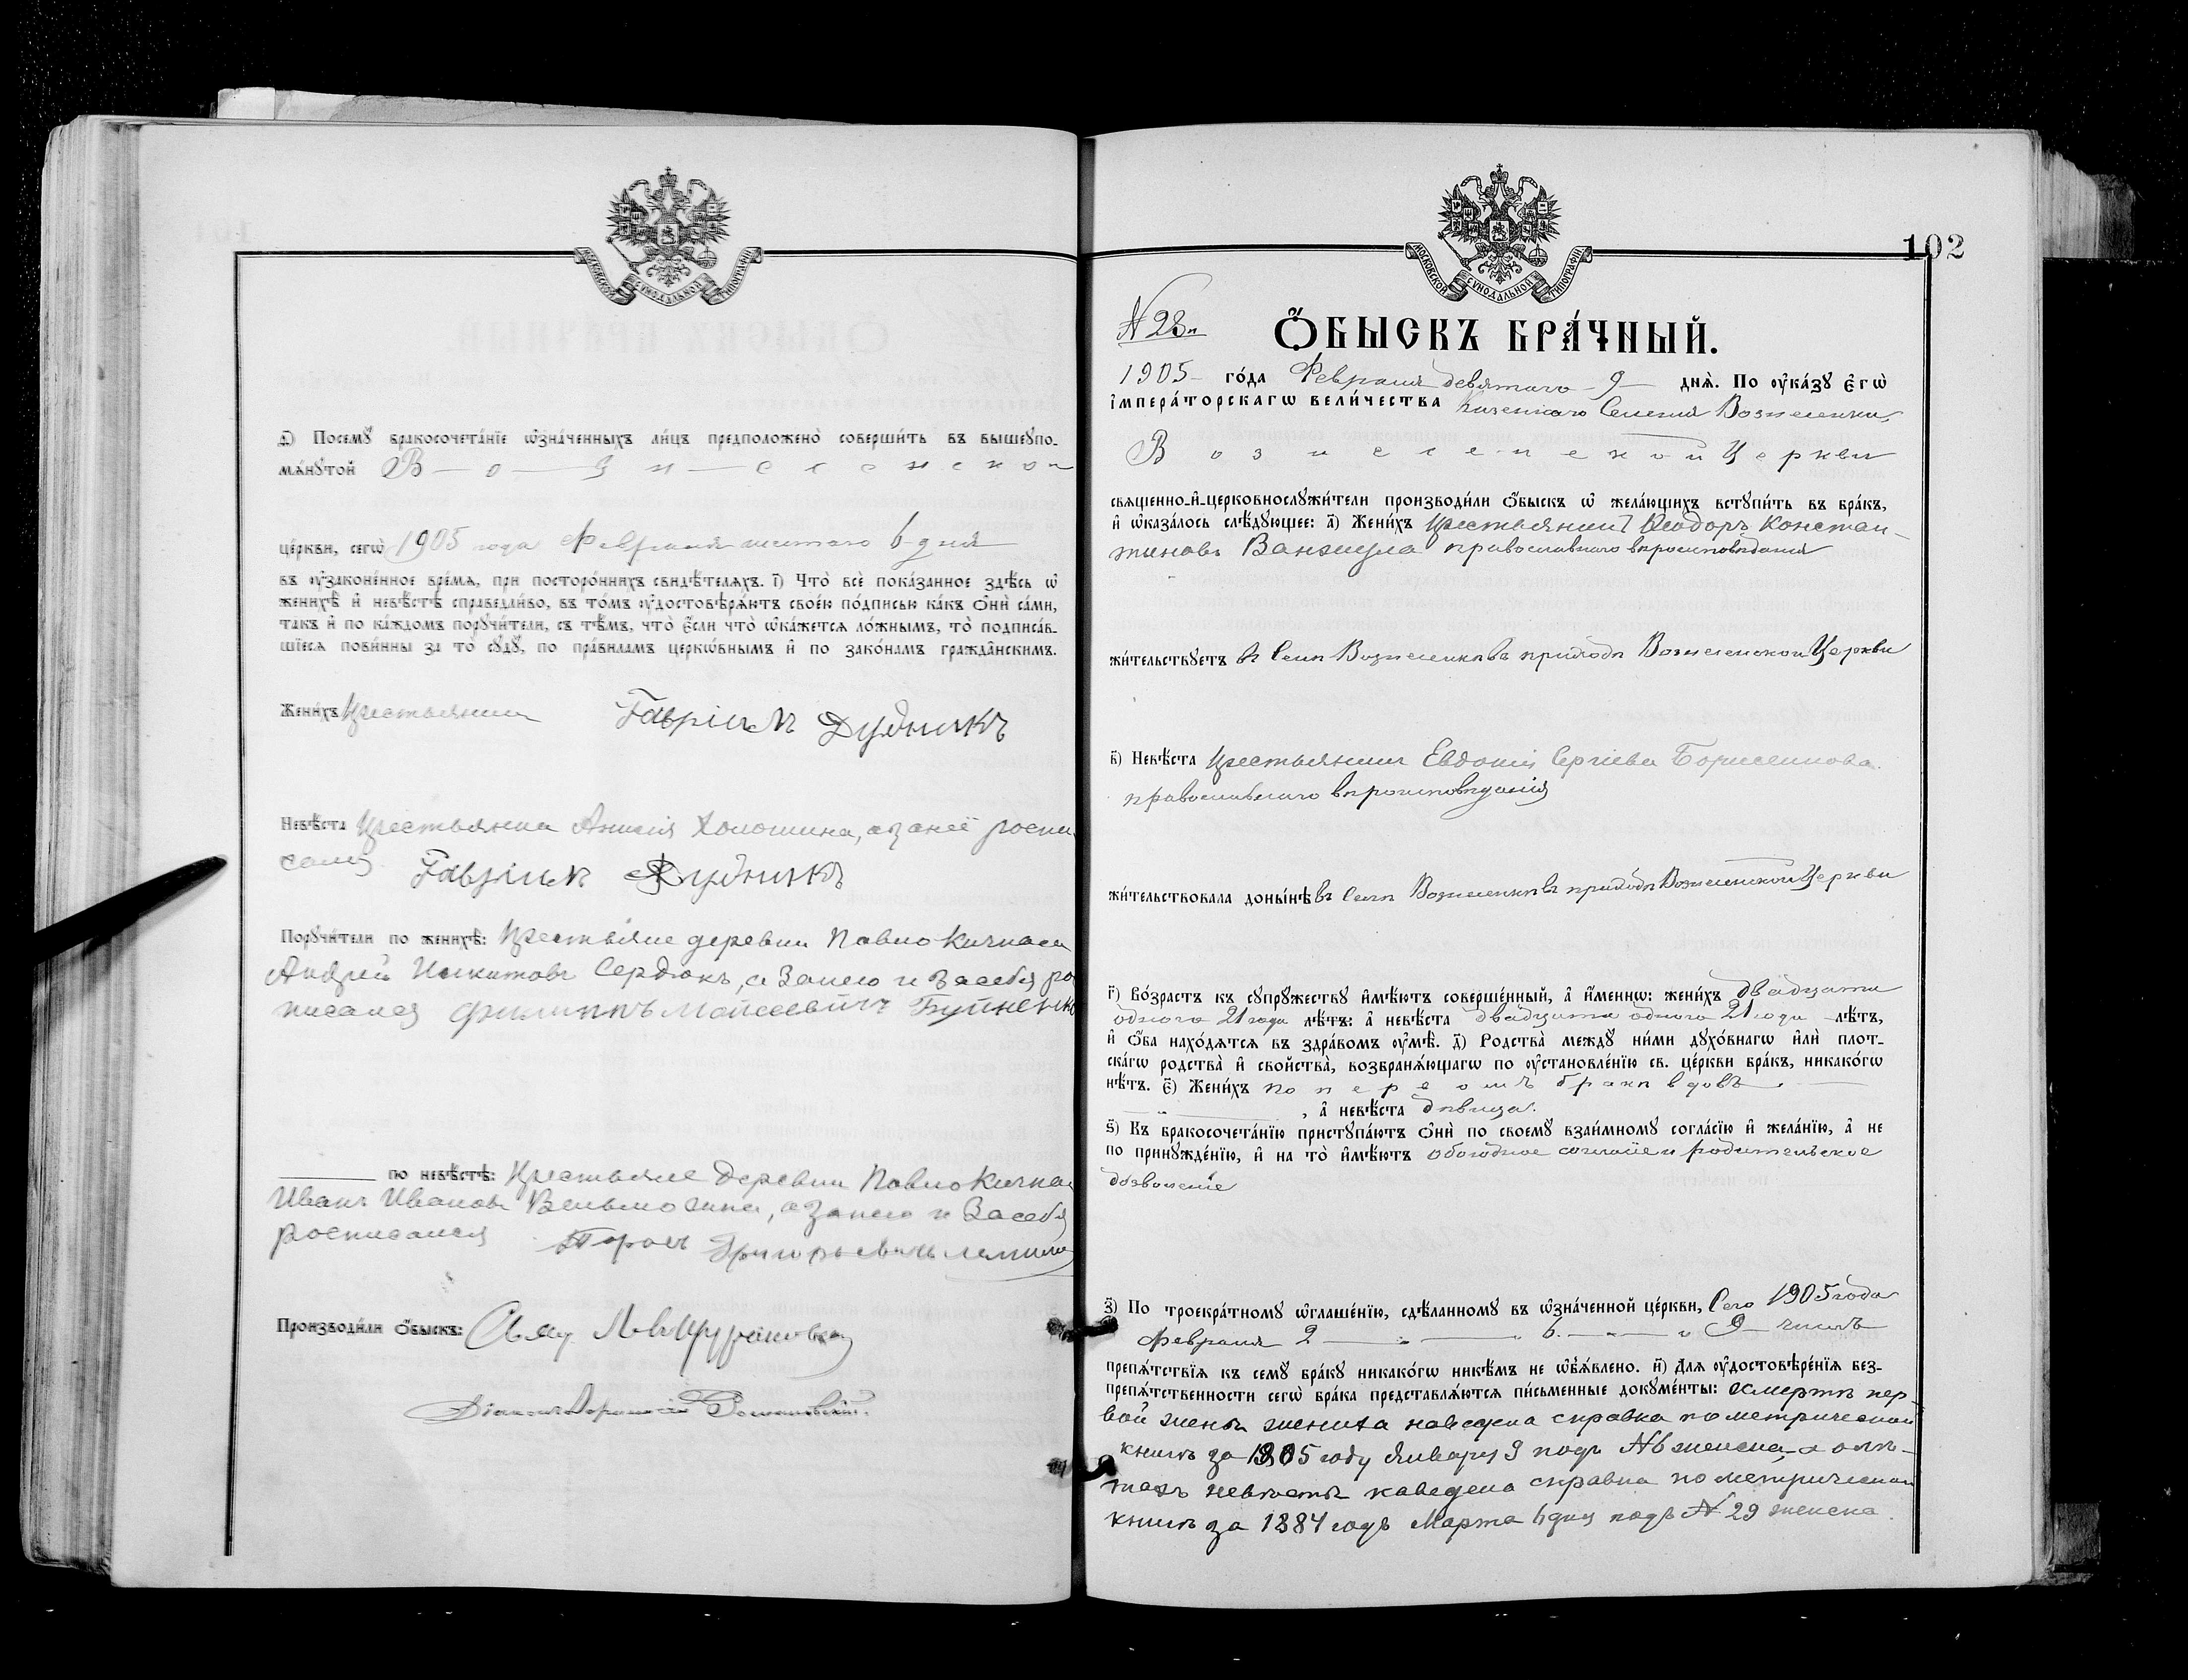 МОСКОВСКОЙ СѴНОДАЛЬНОЙ ТИПОГРАФІИ
ѳ҃) Посемꙋ̀ бракосочета́нїе ѡ҆зна́ченныхъ ли́цъ предположено̀ соверши́ть въ вышеꙋпо-
мѧ́нꙋтой В о з н е с е н с к о й
це́ркви, сегѡ̀ 1905 года Февраля шестого 6 дня
въ ᲂу҆зако́ненное вре́мѧ, при посторо́ннихъ свидѣ́телѧхъ. і҃) Что̀ всѐ пока́занное здѣ́сь ѡ҆
женихѣ̀ и҆ невѣ́стѣ справедли́во, въ то́мъ ᲂу҆достовѣрѧ́ютъ свое́ю по́дписью ка́къ ѻ҆нѝ са́ми,
та́къ и҆ по ка́ждомъ порꙋчи́тели, съ тѣ́мъ, что̀ є҆́сли что̀ ѡ҆ка́жетсѧ ло́жнымъ, то̀ подписа́в-
шїесѧ пови́нны за то̀ сꙋдꙋ̀, по пра́виламъ церкѡ́внымъ и҆ по зако́намъ гражда̑нскимъ.
Жени́хъ Крестьянин Гавріилъ Дудникъ
Невѣ́ста Крестьянка Анисія Холошина, а за неё роспи
сался Гавріилъ Дудникъ
Порꙋчи́тели по женихѣ̀: Крестьяне деревни Павло Кичкаса
Андрей Никитовъ Сердюкъ, а за него и за себя ро
писался Филиппъ Мойсеевичъ
по невѣ́стѣ: Крестьяне деревни Павло Кичкас
Иванъ Ивановъ а за него и за себя
росписался Григорьевичъ
Производи́ли ѻ҆́быскъ: Свящ.
Діаконъ
МОСКОВСКОЙ СѴНОДАЛЬНОЙ ТИПОГРАФІИ
102
№ 28й
Ѻ҆́БЫСКЪ БРА́ЧНЫЙ.
1905 го́да Февраля девятаго 9 днѧ̀. По ᲂу҆ка́зꙋ є҆гѡ̀
і҆мпера́торскагѡ вели́чества Селенія Вознесенки
В о з н е с е н с к о й Церкви
свѧщенно-и҆-церковнослꙋжи́тели производи́ли ѻ҆́быскъ ѡ҆ жела́ющихъ встꙋпи́ть въ бра́къ,
и҆ ѡ҆каза́лось слѣ́дꙋющее: а҃) Жени́хъ Крестьянинъ Ѳеодоръ Констан-
тиновъ Ванжула православнаго вѣроисповѣданія
жи́тельствꙋетъ въ Селѣ Вознесенкѣ въ приходѣ Вознесенской Церкви
в҃) Невѣ́ста Крестьянка Евдокія Сергіева Борисенкова
православнаго вѣроисповѣданія
жи́тельствовала доны́нѣ въ Селѣ Вознесенкѣ въ приходѣ Вознесенской Церкви
г҃) Во́зрастъ къ сꙋпрꙋ́жествꙋ и҆мѣ́ютъ соверше́нный, а҆ и҆́меннѡ: жени́хъ двадцати
одного 21 года лѣ́тъ: а҆ невѣ́ста двадцати одного 21 года лѣ́тъ,
и҆ ѻ҆́ба нахо́дѧтсѧ въ здра́вомъ ᲂу҆мѣ̀. д҃) Родства̀ междꙋ̀ ни́ми дꙋхо́внагѡ и҆лѝ плот-
ска́гѡ родства̀ и҆ сво́йства̀, возбранѧ́ющагѡ по ᲂу҆становле́нїю св. це́ркви бра́къ, никако́гѡ
нѣ́тъ. є҃) Жени́хъ по первомъ бракѣ вдовъ
, а҆ невѣ́ста дѣвица.
ѕ҃) Къ бракосочета́нїю пристꙋпа́ютъ ѻ҆нѝ по своемꙋ̀ взаи́мномꙋ согла́сїю и҆ жела́нїю, а҆ не
по принꙋжде́нїю, и҆ на то̀ и҆мѣ́ютъ обоюдное согласіе и родительское
дозволеніе
з҃) По троекра́тномꙋ ѡ҆глаше́нїю, сдѣ́ланномꙋ въ ѡ҆зна́ченной це́ркви, Сего 1905 года
Февраля 2 6 и 9 числъ
препѧ́тствїѧ къ семꙋ̀ бра́кꙋ никако́гѡ никѣ́мъ не ѡ҆б̾ѧ́влено. и҃) Длѧ ᲂу҆достовѣре́нїѧ без-
препѧ́тственности сегѡ̀ бра́ка представлѧ́ютсѧ пи́сьменные докꙋме́нты: о смерти пер-
вой жены жениха наведена справка по метрической
книгѣ за 1905 году Января 9 подъ № 6 женска, а о лѣ-
тахъ невѣсты наведена справка по метрической
книгѣ за 1884 годъ Марта дня подъ № 29 женска.